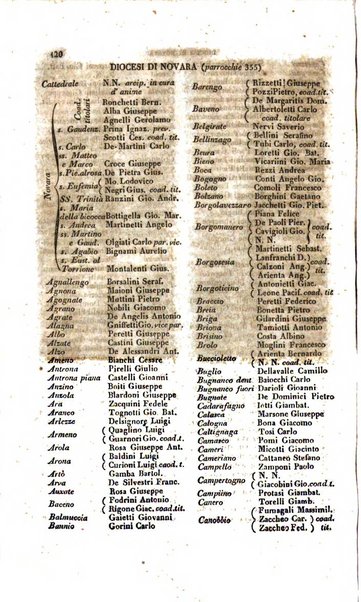 120
DIOCESI DI NOVARA (parrocchie 355)
Cattedrale N.N. arcip. in cura d'anime
Novara
Coad. titolari
Ronchetti Bern.
Alba Giuseppe
Agnelli Gerolamo
s. Gaudenz. Prina Ignaz. prev.
Scotti Ces. coad. tit.
s. Carlo De-Martini Carlo
ss. Matteo
e Marco Croce Giuseppe
s. Pie. alrosa De Pietra Gius.
s. Eufemia Mo. Lodovico
Negri Gius. coad. tit.
SS. Trinità Ranzini Gio. Andr.
s. Maria
della bicocca Bottigella Gio. Mar.
s. Andrea Martinetti Angelo
ss. Martino
e Gaud. Olgiati Carlo par.
s. Agabio Bignami Aurelio
s. East. al
Torrione Montalenti Gius.
Agnallengo Borsalini Seraf.
Agnona Maioni Giuseppe
Agognate Mattini Pietro
Agrano Nobili Giacomo
Agrate De Angelis Antonio
Alagna Gniffetti Gio. vice par.
Albo Peretti Carlo
Alzate Castini Giuseppe
Alzo De Alessandri Ant.
Ameno Bianchi Cesare
Antrona Pirelli Giulio
Antrona piana Castelli Gioanni
Anzino Boiti Giuseppe
Anzola Blardoni Giuseppe
Ara Zacquini Fedele
Aranco Tognotti Gio. Bat.
Arlezze Delsignorj Luigi
Armeno Quaglino Luigi
Guarnori Gio. coad. t.
Arola Rosa Giuseppe Ant.
Arona Baldini Luigi
Curioni Luigi coad. t.
Artò Gamba Bartol.
Arva De Silvestri Franc.
Auzate Rosa Giuseppe
Baceno Fodrini Antonio
Rigorie Giac. coad. tit.
Balmuccia Gaietti Giovanni
Bannio Gorini Carlo
Barengo Rizzetti Giuseppe
Pozzi Pietro, coad. tit.
Baveno De Margaritis Dom.
Albertoletti Carlo coad. titolare
Belgirate Nervi Saverio
Bellinzago Bellini Serafino
Tubi Carlo, coad. tit.
Beura Loretti Gio. Bat.
Bieno Vicarlini Gio. Maria
Boca Rezzi Andrea
Bogogno Conti Angelo Gio.
Boleto Comoli Francesco
Bolzano Borghini Gaetano
Borgolavezzaro Jacchetti Gio. Piet.
Borgomanero Piana Felice
De Paoli Pier.
Cavigioli Gio. coad. tit.
N. N.
Borgosesia Martinetti Sebast.
Lanfranchi D.
Calzoni Ang. coad. tit.
Arienta Ang.
Borgoticino Antonietti Giac.
Leone Pacif. coad. tit.
Bravcio Peretti Federico
Breia Bonetta Pietro
Briga Gilardini Giuseppe
Briona Tamiotti Antonio
Brisino Costa Albino
Brolo Moglini Francesco
Buccioletto Arienta Bernardo
N. N. coad. tit.
Buglio Dellavalle Camillo
Bugnanco dent Baiocchi Carlo
Bugnanco fuori Darioli Gioanni
Bugnate De Dominici Pietro
Cadarafagno Iotti Giambat.
Calasca Marsone Giuseppe
Calogna Bona Giuseppe
Caltignaga Tosi Carlo
Camasco Pomi Giacomo
Cameri Micotti Giacinto
Cameriano Cattaneo Stefano
Campello Zamponi Paolo
Campertogno N. N.
Giacobini Gio. coad. tit.
Campiino Protasi Giambat.
Canero Torelli Giamb.
Canobbio Fumagali Massimil.
Zaccheo Car. coad.
Zaccheo Fed. tit.